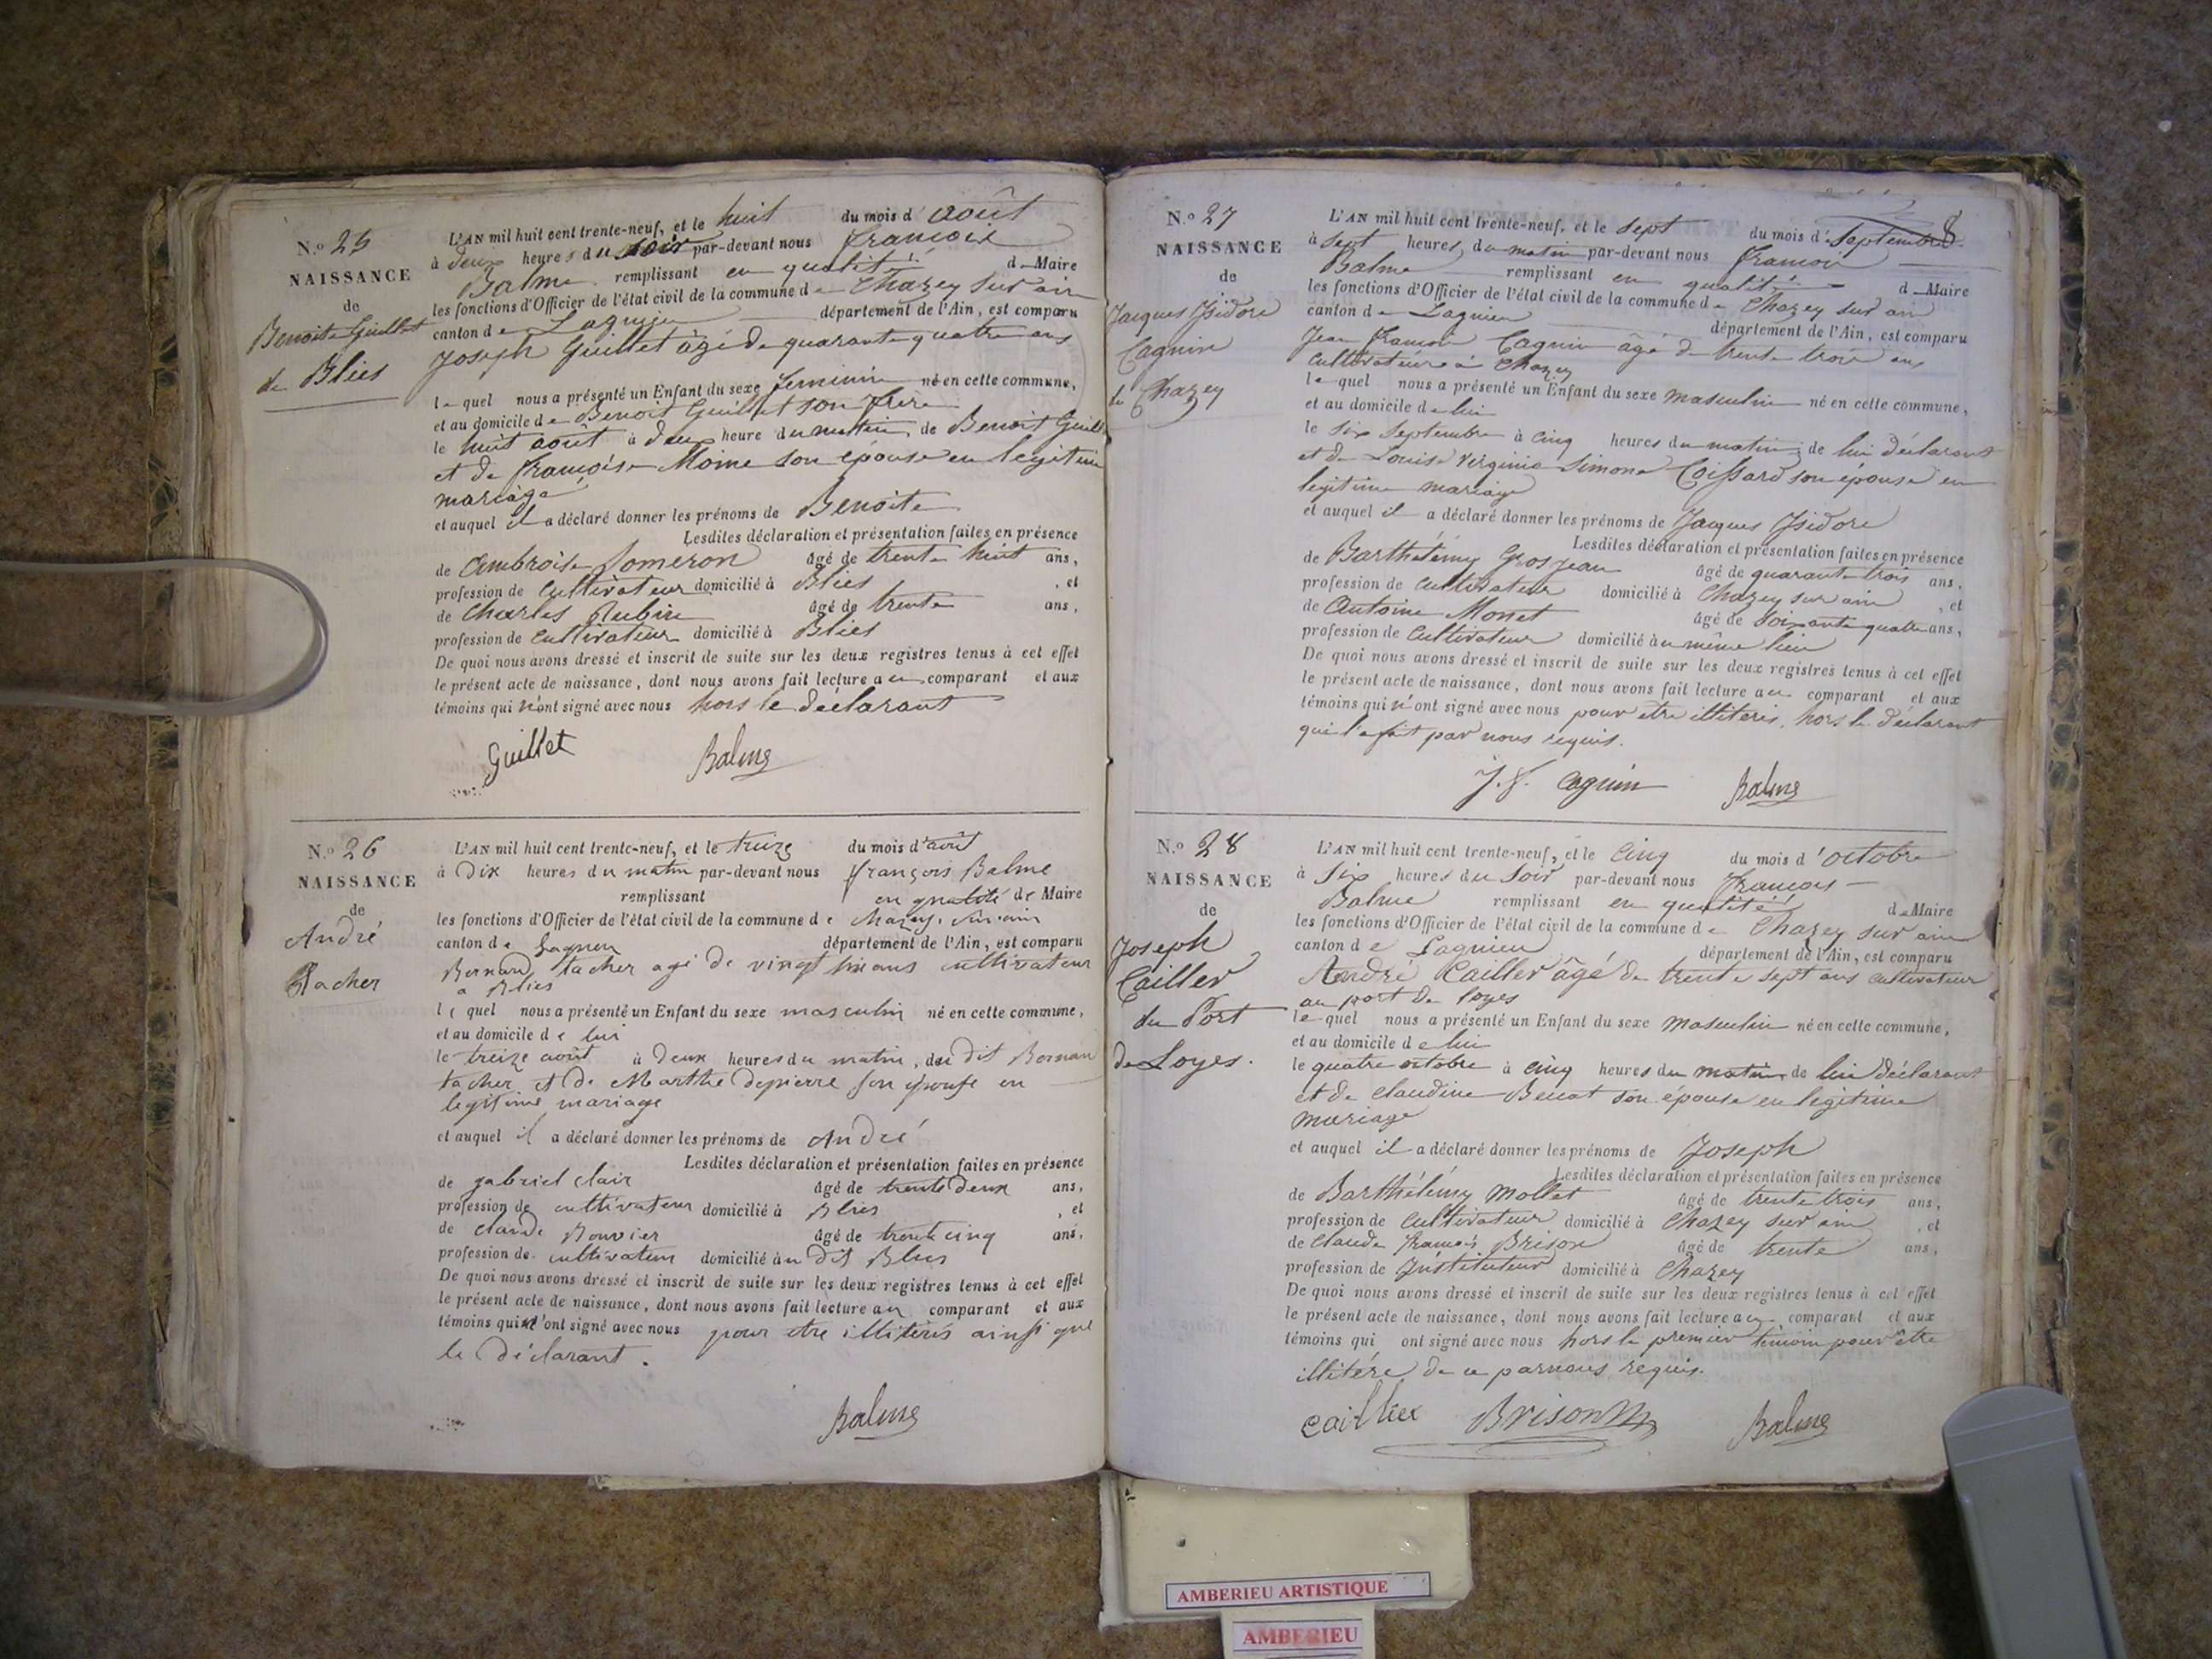 N.º 25
NAISSANCE
de
Benoite Guillet
de Blies
L'AN mil huit cent trente-neuf, et le huit du mois d' août
à deux heures du soir par-devant nous François
Balme remplissant en qualité de Maire
les fonctions d'Officier de l'état civil de la commune de Chazey sur ain
canton de Lagnieu département de l'Ain, est comparu
Joseph Guillet âgé de quarante quatre ans
lequel nous a présenté un Enfant du sexe feminin né en cette commune,
et au domicile de Benoit Guillet son frere
le huit août à deux heure du matin, de Benoit Guill
et de françoise Moine son épouse en legitime
mariage
et auquel il a déclaré donner les prénoms de Benoite
Lesdites déclaration et présentation faites en présence
de Ambroise Someron âgé de trente huit ans,
profession de cultivateur domicilié à Blies, et
de Charles Aubin âgé de trente ans,
profession de cultivateur domicilié à Blies
De quoi nous avons dressé et inscrit de suite sur les deux registres tenus à cet effet
le présent acte de naissance, dont nous avons fait lecture au comparant et aux
témoins qui n'ont signé avec nous hors le déclarant
Guillet Balme
N.º 26
NAISSANCE
de
André
Tacher
L'AN mil huit cent trente-neuf, et le treize du mois d'août
à dix heures du matin par-devant nous françois Balme
remplissant en qualité de Maire
les fonctions d'Officier de l'état civil de la commune de Chazey sur ain
canton de Lagnieu département de l'Ain, est comparu
Bernard tacher agé de vingt ans cultivateur
a Blies
lequel nous a présenté un Enfant du sexe masculin né en cette commune,
et au domicile de lui
le treize août à deux heures du matin, du dit Bernar
tacher et de Marthe Depierre son épouse en
legitime mariage
et auquel il a déclaré donner les prénoms de André
Lesdites déclaration et présentation faites en présence
de gabriel clair âgé de trente deux ans,
profession de cultivateur domicilié à Blies, et
de claude Bouvier âgé de trente cinq ans,
profession de cultivateur domicilié au dit Blies
De quoi nous avons dressé et inscrit de suite sur les deux registres tenus à cet effet
le présent acte de naissance, dont nous avons fait lecture au comparant et aux
témoins qui n'ont signé avec nous pour être illiterés ainsi que
le déclarant.
Balme
8
N.º 27
NAISSANCE
de
Jacques Isidore
Cagnin
de Chazey
L'AN mil huit cent trente-neuf, et le sept du mois d' septembre
à sept heures du matin par-devant nous François
Balme remplissant en qualité de Maire
les fonctions d'Officier de l'état civil de la commune de Chazey sur ain
canton de Lagnieu département de l'Ain, est comparu
Jean François Cagnin âgé de trente trois ans
cultivateur à Chazey
lequel nous a présenté un Enfant du sexe masculin né en cette commune,
et au domicile de lui
le six septembre à cinq heures du matin de lui déclarant
et de Louise Virginie Simone Coissard son épouse en
legitime mariage
et auquel il a déclaré donner les prénoms de Jacques Isidore
Lesdites déclaration et présentation faites en présence
de Barthélémy Grosjean âgé de quarante trois ans,
profession de cultivateur domicilié à Chazey sur ain, et
de Antoine Monet âgé de soixante quatre ans,
profession de cultivateur domicilié au même lieu
De quoi nous avons dressé et inscrit de suite sur les deux registres tenus à cet effet
le présent acte de naissance, dont nous avons fait lecture au comparant et aux
témoins qui n'ont signé avec nous pour etre illiteris, hors le déclarant
qui l'a fait par nous requis.
J. f. cagnin Balme
N.º 28
NAISSANCE
de
Joseph
Cailler
du Port
de Loyes.
L'AN mil huit cent trente-neuf, et le cinq du mois d' octobre
à six heures du soir par-devant nous François
Balme remplissant en qualité de Maire
les fonctions d'Officier de l'état civil de la commune de Chazey sur ain
canton de Lagnieu département de l'Ain, est comparu
André Cailler âgé de trente sept ans cultivateur
au port de loyes
lequel nous a présenté un Enfant du sexe masculin né en cette commune,
et au domicile de lui
le quatre octobre à cinq heures du matin de lui déclarant
et de Claudine Benat son épouse en legitime
mariage
et auquel il a déclaré donner les prénoms de Joseph
Lesdites déclaration et présentation faites en présence
de Barthélémy Mollet âgé de trente trois ans,
profession de cultivateur domicilié à Chazey sur ain, et
de Claude François Brison âgé de trente ans,
profession de Instituteur domicilié à Chazey
De quoi nous avons dressé et inscrit de suite sur les deux registres tenus à cet effet
le présent acte de naissance, dont nous avons fait lecture au comparant et aux
témoins qui ont signé avec nous hors le premier temoin pour être
illitéré de ce par nous requis.
Caillier Brison Balme
AMBERIEU ARTISTIQUE
AMBERIEU